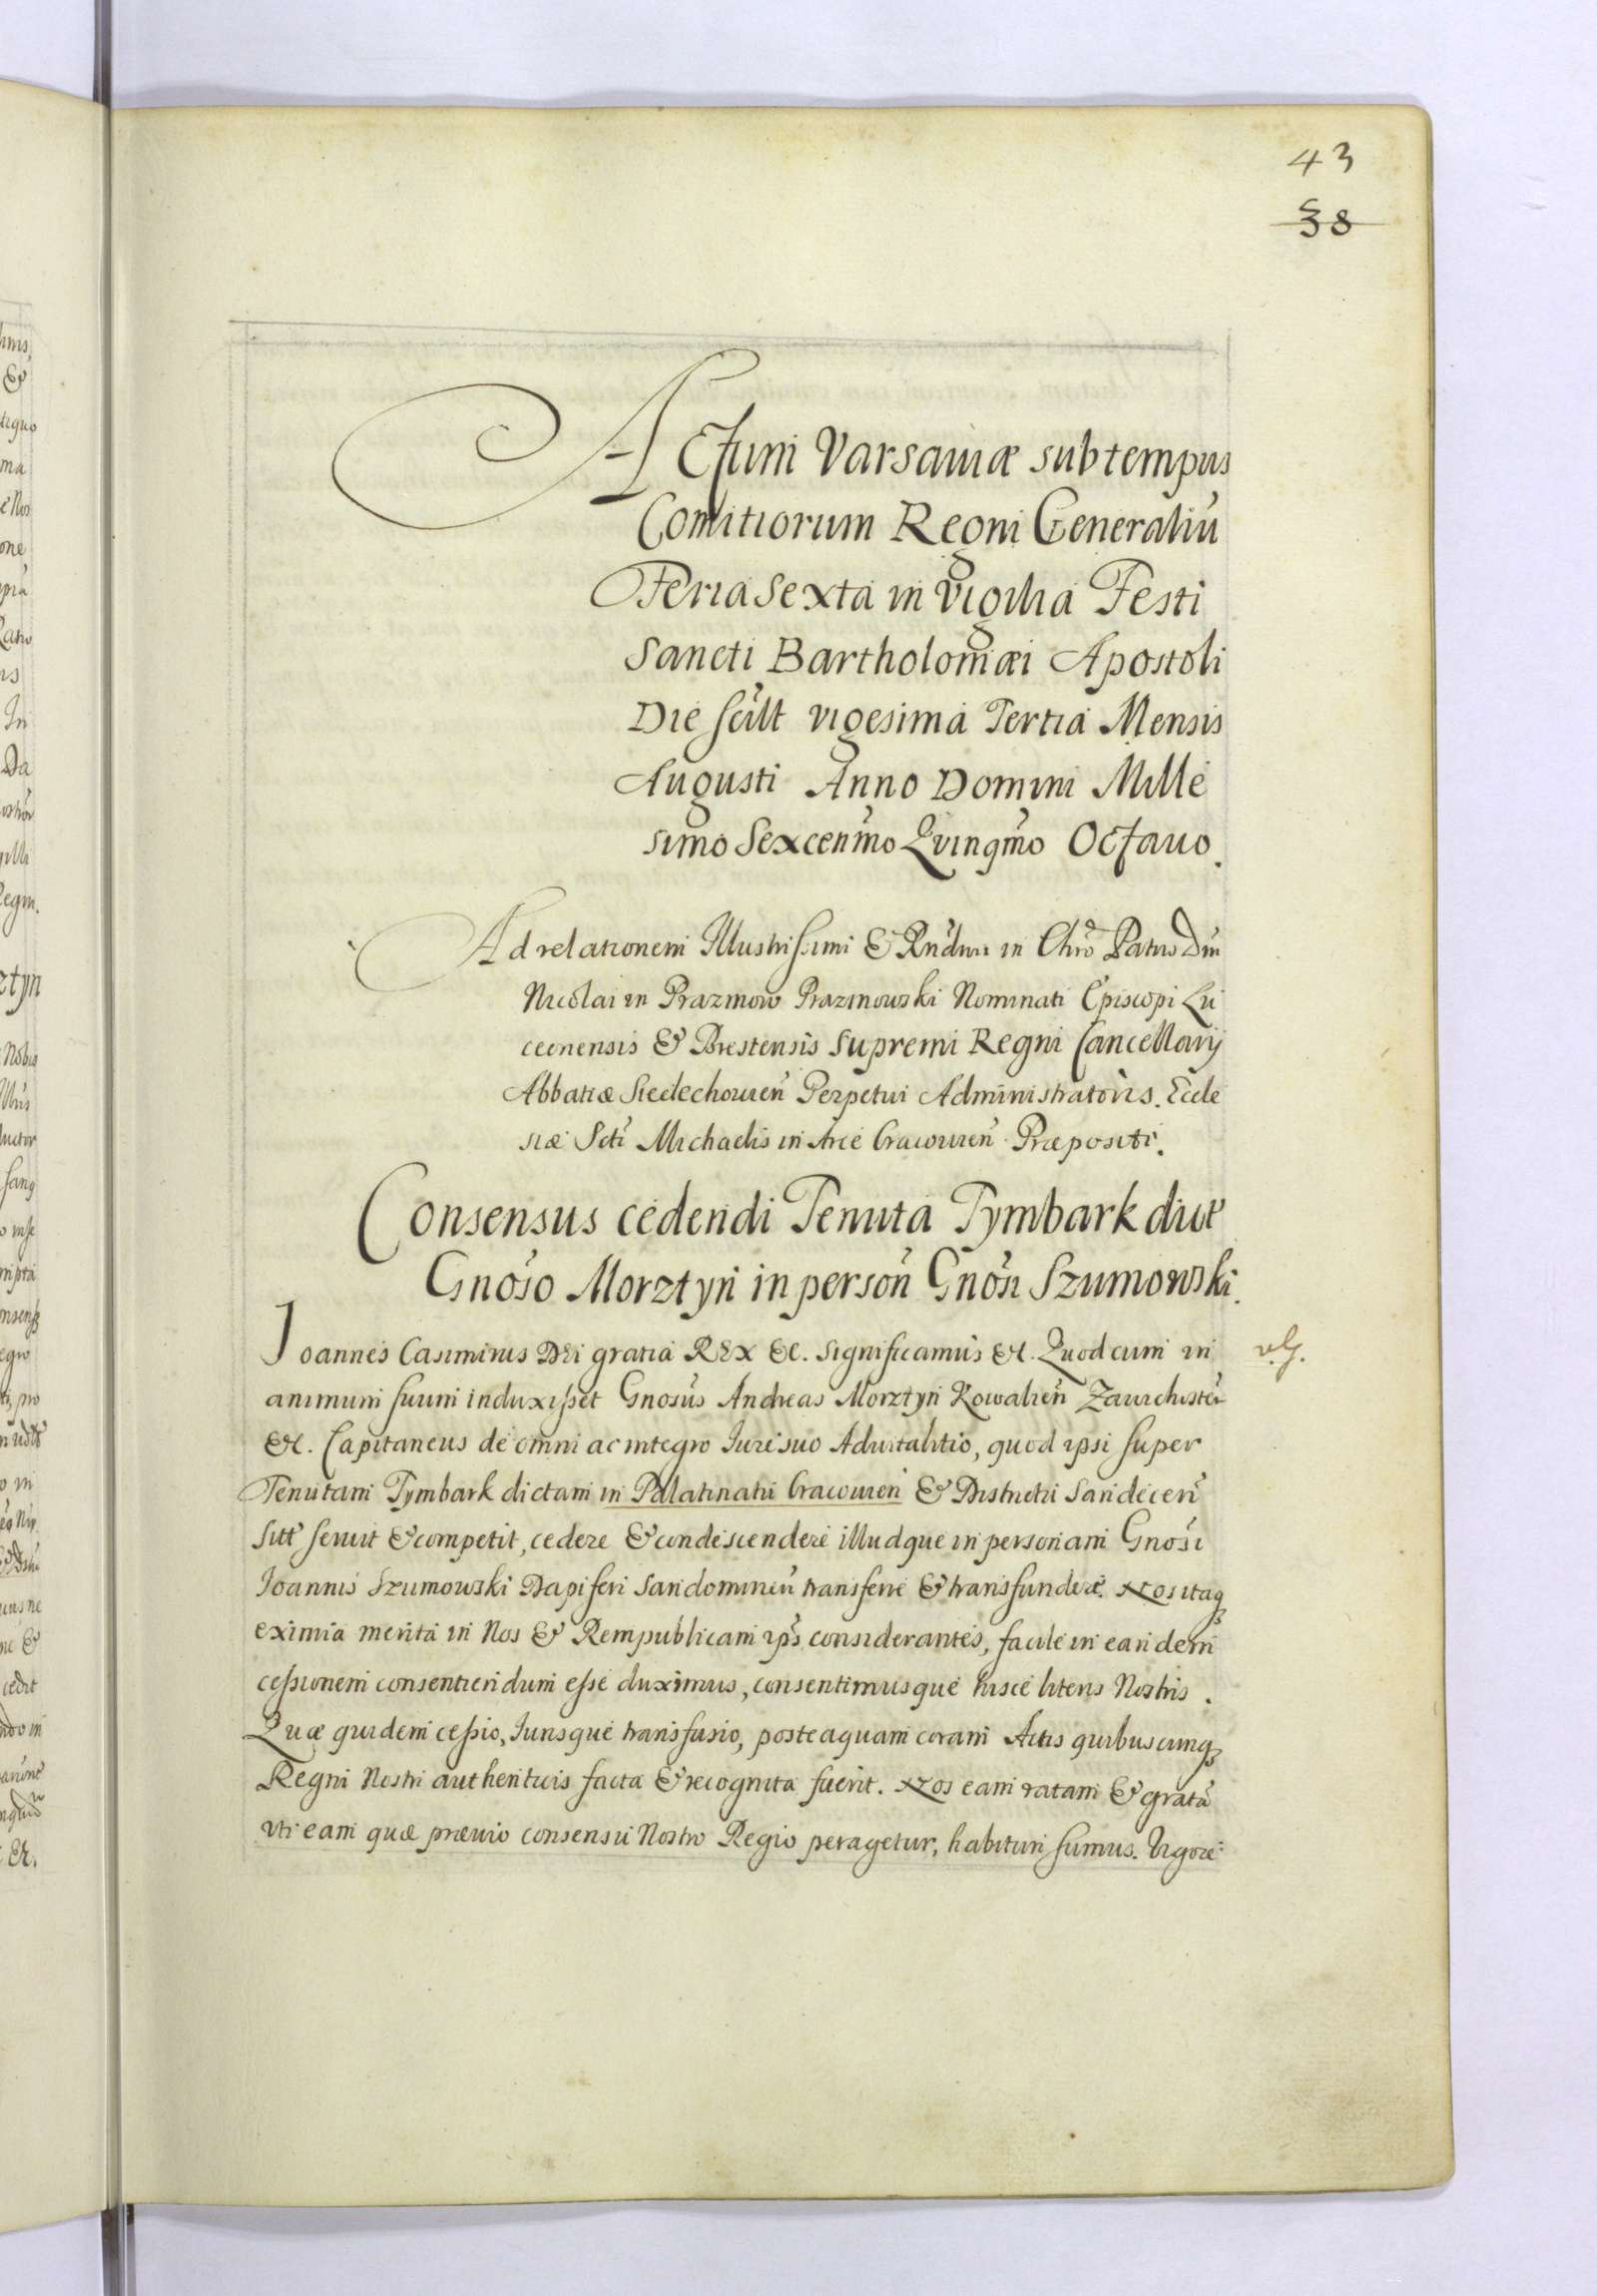 43
38
Actum Varsaviæ sub tempus
Comitiorum Regni Generaliũ
Feria Sexta in Vigilia Festi
Sancti Bartholomæi Apostoli
Die scilt vigesima Tertia Mensis
Augusti Anno Domini Mille
simo Sexcenmo Qvinqmo Octauo.
Ad relationem Illustrissimi & Rndmi in Chro Patris Dni
Nicolai in Prazmow Prazmowski Nominati Episcopi Lu
ceonensis & Brestensis Supremi Regni Cancellarij
Abbatiæ Siedechouien Perpetui Administratoris. Eccle
siæ Scti Michaelis in Arce Cracouien Præpositi.
Consensus cedendi Tenuta Tymbark dict
Gnoso Morztyn in person Gnosi Szumowski.
Joannes Casimirus Dei gratia REX &c. Significamus &c. Quod cum in
animum suum induxisset Gnosus Andreas Morztyn Kowalien Zawichosten
&c. Capitaneus de omni ac integro Iure suo Aduitalitio, quod ipsi super
Tenutam Tymbark dictam in Palatinatu Cracouien & Districtu Sandecen
sitt seruit & competit, cedere & condescendere illudque in personam Gnosi
Joannis Szumowski Dapiferi Sandomirien transferre & transfundere. Nos itaq
eximia merita in Nos & Rempublicam ips considerantes, facile in eandem
cessionem consentiendum esse duximus, consentimusque hisce literis Nostris.
Quæ quidem cessio, Iurisque transfusio, posteaquam coram Actis quibuscunq
Regni Nostri authenticis facta & recognita fuerit. Nos eam ratam & gratã
vti eam quæ præuio consensu Nostro Regio peragetur, habituri sumus. Vigore